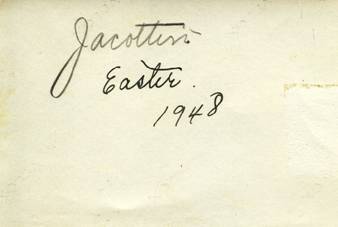 Jacotters
Easter.
1948